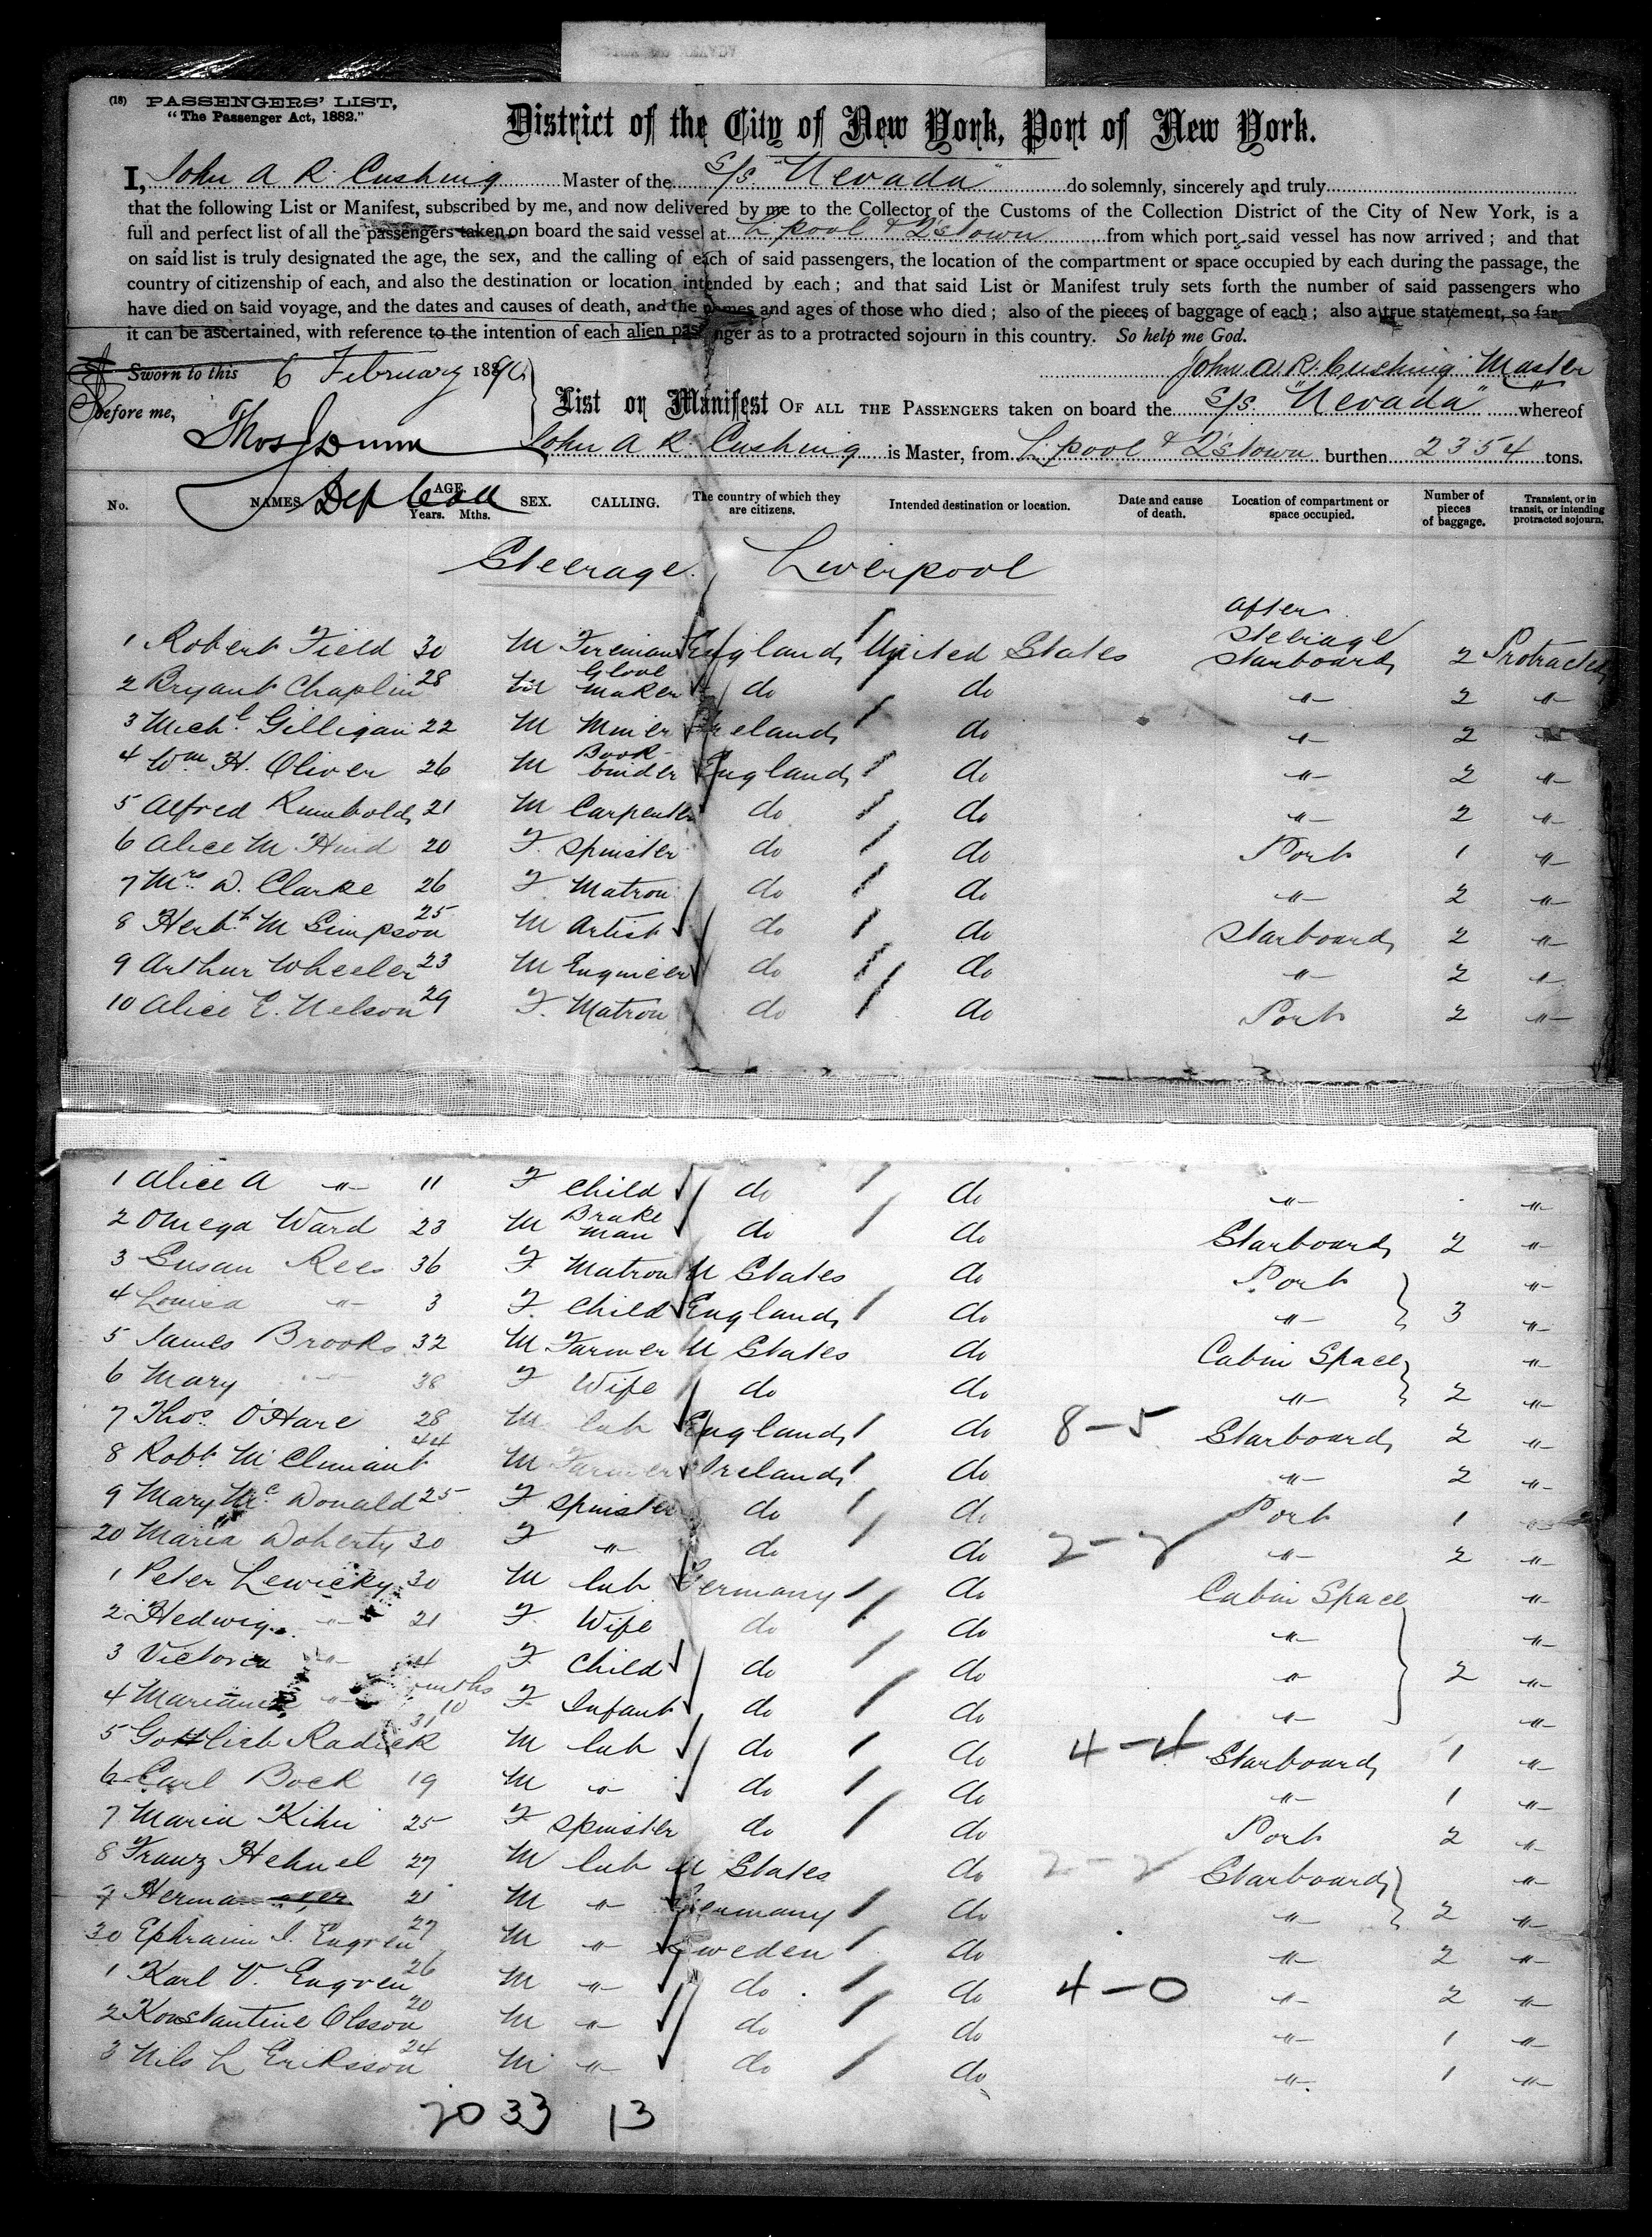 (18) PASSENGERS' LIST,
"The Passenger Act, 1882."
District of the City of New York, Port of New York.
I, John A R Cushing Master of the S/S. "Nevada" do solemnly, sincerely and truly
that the following List or Manifest, subscribed by me, and now delivered by me to the Collector of the Customs of the Collection District of the City of New York, is a
full and perfect list of all the passengers taken on board the said vessel at L'pool & Q'stown from which port said vessel has now arrived; and that
on said list is truly designated the age, the sex, and the calling of each of said passengers, the location of the compartment or space occupied by each during the passage, the
country of citizenship of each, and also the destination or location intended by each; and that said List or Manifest truly sets forth the number of said passengers who
have died on said voyage, and the dates and causes of death, and the names and ages of those who died; also of the pieces of baggage of each; also a true statement, so far
it can be ascertained, with reference to the intention of each alien passenger as to a protracted sojourn in this country. So help me God.
Sworn to this 6 February 1890 John A. R. Cushing Master
before me, List or Manifest OF ALL THE PASSENGERS taken on board the S/S. "Nevada" whereof
Thos J Dunn John A R Cushing is Master, from L'pool & Q'stown burthen 2354 tons.
Dep Coll
No. NAMES AGE. Years. Mths. SEX. CALLING. The country of which they are citizens. Intended destination or location. Date and cause of death. Location of compartment or space occupied. Number of pieces of baggage. Transient, or in transit, or intending protracted sojourn.
Steerage. Liverpool
1 Robert Field 30 M Fireman England United States After Steerage Starboard 2 Protracted
2 Bryant Chaplin 28 M Glove Maker do do " 2 "
3 Michl Gilligan 22 M Miner Ireland do " 2 "
4 Wm H. Oliver 26 M Book binder England do " 2 "
5 Alfred Rumbold 21 M Carpenter do do " 2 "
6 Alice M Hind 20 F. Spinster do do Port 1 "
7 Mrs D. Clarke 26 F Matron do do " 2 "
8 Herbt M Simpson 25 M Artist do do Starboard 2 "
9 Arthur Wheeler 23 M Engineer do do " 2 "
10 Alice E. Nelson 29 F. Matron do do Port 2 "
1 Alice A " 11 F Child do do " "
2 Omega Ward 23 M Brake man do do Starboard 2 "
3 Susan Rees 36 F Matron U States do Port "
4 Louisa " 3 F. Child England do " 3 "
5 James Brooks 32 M Farmer U States do Cabin Space "
6 Mary " 38 F Wife do do " 2 "
7 Thos. O'Hare 28 M lab England do 8-5 Starboard 2 "
8 Robt. McClimant 44 M Farmer Ireland do " 2 "
9 Mary Mc Donald 25 F Spinster do do Port 1 "
20 Maria Doherty 30 F " do do " 2 "
1 Peter Lewicky 30 M lab Germany do Cabin Space "
2 Hedwig " 21 F. Wife do do " "
3 Victoria " 4 F. Child do do " 2 "
4 " months 10 F. Infant do do " "
5 Gottlieb Radick 31 M lab do do 4-4 Starboard 1 "
6 Carl Bock 19 M " do do " 1 "
7 Maria Kihn 25 F Spinster do do Port 2 "
8 Franz Hehnel 27 M lab U States do Starboard "
9 Herman 21 M " Germany do " 2 "
30 Ephraim I. Engren 27 M " Sweden do " 2 "
1 Karl V. Engren 26 M " do do 4-0 " 2 "
2 Konstantine Olsson 20 M " do do " 1 "
3 Nils L Eriksson 24 M " do do " 1 "
20 33 13